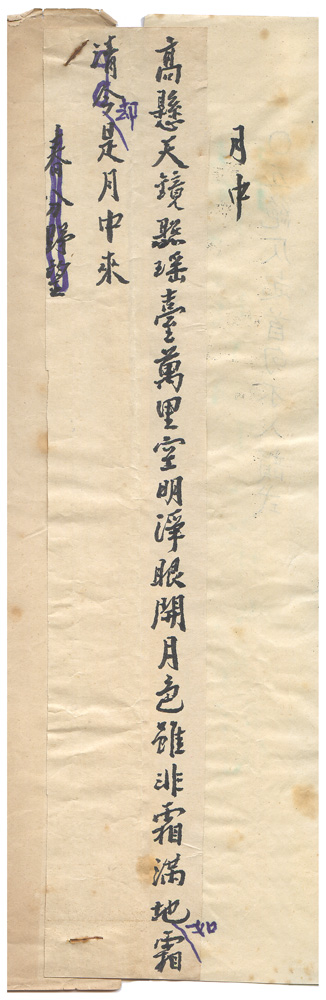 月中
高懸天鏡懸瑤臺萬里空明淨眼開月色雖非霜滿地如霜
清却是月中來